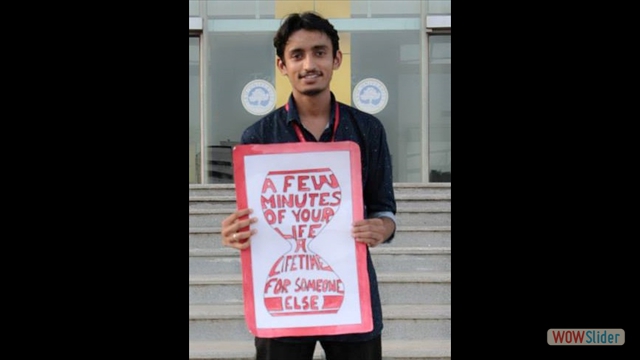 A FEW
MINUTES
OF YOUR
LIFE
A
LIFETIME
FOR SOMEONE
ELSE
WOWSlider